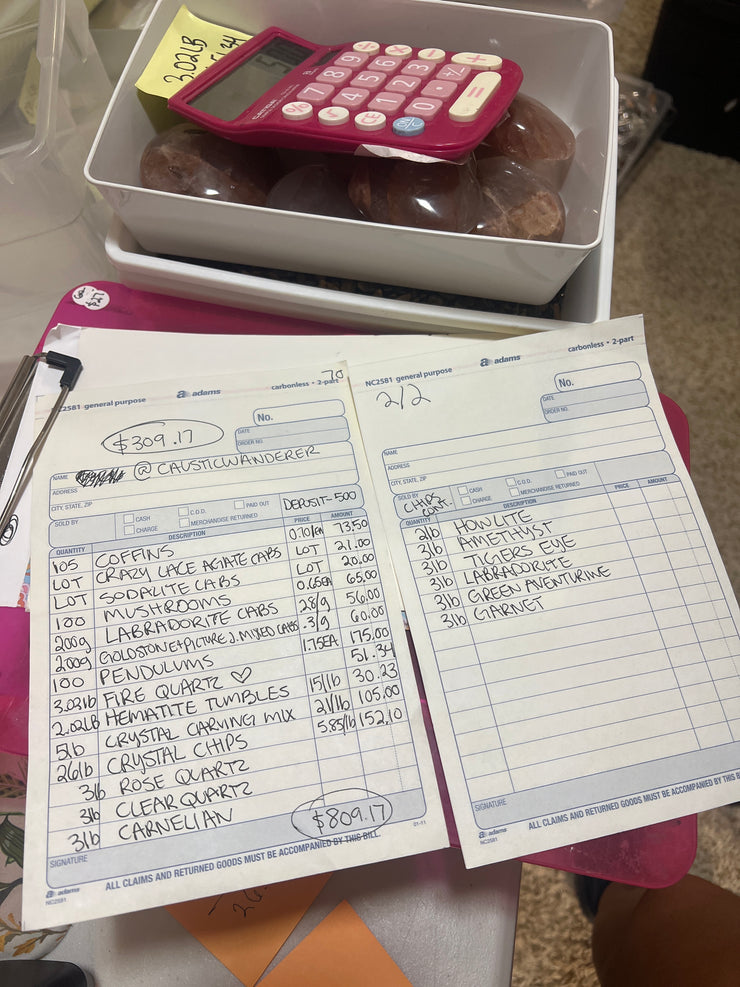 3.02LB
% 7 8 9 ÷
√ 4 5 6 ×
CE 1 2 3 −
0 . +/- +
=
carbonless • 2-part
NC2581 general purpose
adams
70
$309.17
No.
DATE
ORDER NO.
NAME @CAUSTICWANDERER
ADDRESS
CITY, STATE, ZIP
SOLD BY
CASH
C.O.D.
PAID OUT
DEPOSIT-500
CHARGE
MERCHANDISE RETURNED
QUANTITY DESCRIPTION PRICE AMOUNT
105 COFFINS 0.70/EA 73.50
LOT CRAZY LACE AGATE CABS LOT 21.00
LOT SODALITE CABS LOT 20.00
100 MUSHROOMS 0.65EA 65.00
200g LABRADORITE CABS .28/g 56.00
200g GOLDSTONE+PICTURE J. MIXED CABS .3/g 60.00
100 PENDULUMS 1.75EA 175.00
3.02lb FIRE QUARTZ ♡ 51.34
2.02LB HEMATITE TUMBLES 15/lb 30.23
5lb CRYSTAL CARVING MIX 21/lb 105.00
26lb CRYSTAL CHIPS 5.85/lb 152.10
3lb ROSE QUARTZ
3lb CLEAR QUARTZ
3lb CARNELIAN
$809.17
SIGNATURE
01-11
ALL CLAIMS AND RETURNED GOODS MUST BE ACCOMPANIED BY THIS BILL.
adams
NC2581
carbonless • 2-part
NC2581 general purpose
adams
2/2
No.
DATE
ORDER NO.
NAME
ADDRESS
CITY, STATE, ZIP
SOLD BY
CHIPS CONT.
CASH
C.O.D.
PAID OUT
CHARGE
MERCHANDISE RETURNED
QUANTITY DESCRIPTION PRICE AMOUNT
2lb HOWLITE
3lb AMETHYST
3lb TIGERS EYE
3lb LABRADORITE
3lb GREEN AVENTURINE
3lb GARNET
SIGNATURE
ALL CLAIMS AND RETURNED GOODS MUST BE ACCOMPANIED BY THIS B
adams
NC2581